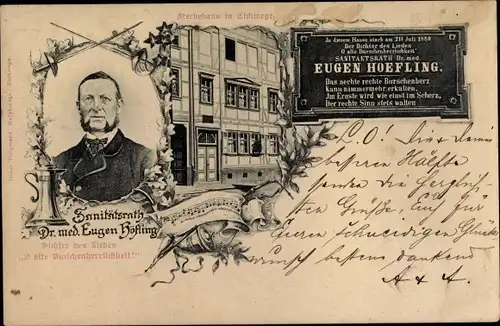 Sterbehaus in Eschwege.
In diesem Hause starb am 21ᵗ Juli 1880
Der Dichter des Liedes
O alte Burschenherrlichkeit
SANITAETSRATH Dr. med.
EUGEN HOEFLING.
Das aechte rechte Burschenherz
Kann nimmermehr erkalten,
Im Ernste wird wie einst im Scherz,
Der rechte Sinn stets walten
Sanitätsrath
Dr. med. Eugen Höfling
Dichter des Liedes
„O alte Burschenherrlichkeit!"
L. O! Die u. Deiner
besseren Hälfte
senden die herzlich-
sten Grüße, Euch für
Euren
bestens dankend
A & A.